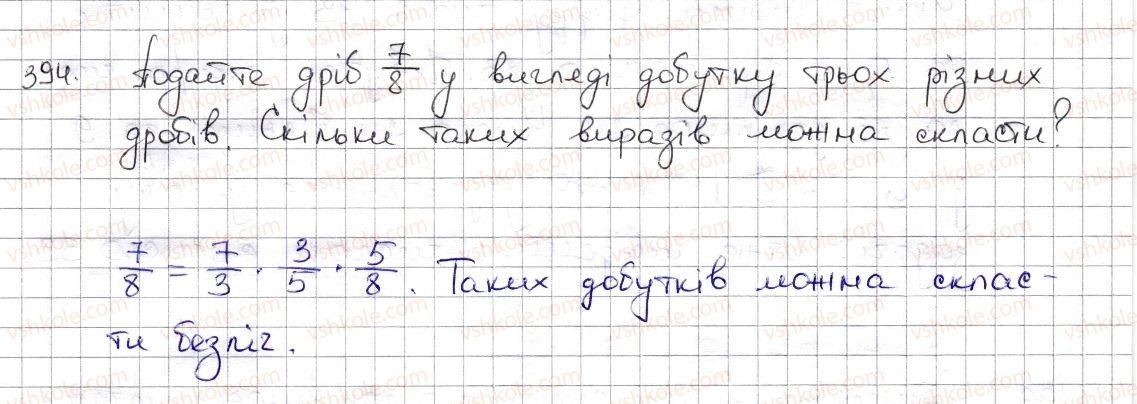 394. Подайте дріб 7/8 у вигляді добутку трьох різних
дробів. Скільки таких виразів можна скласти?
7/8 = 7/3 · 3/5 · 5/8. Таких добутків можна склас-
ти безліч.